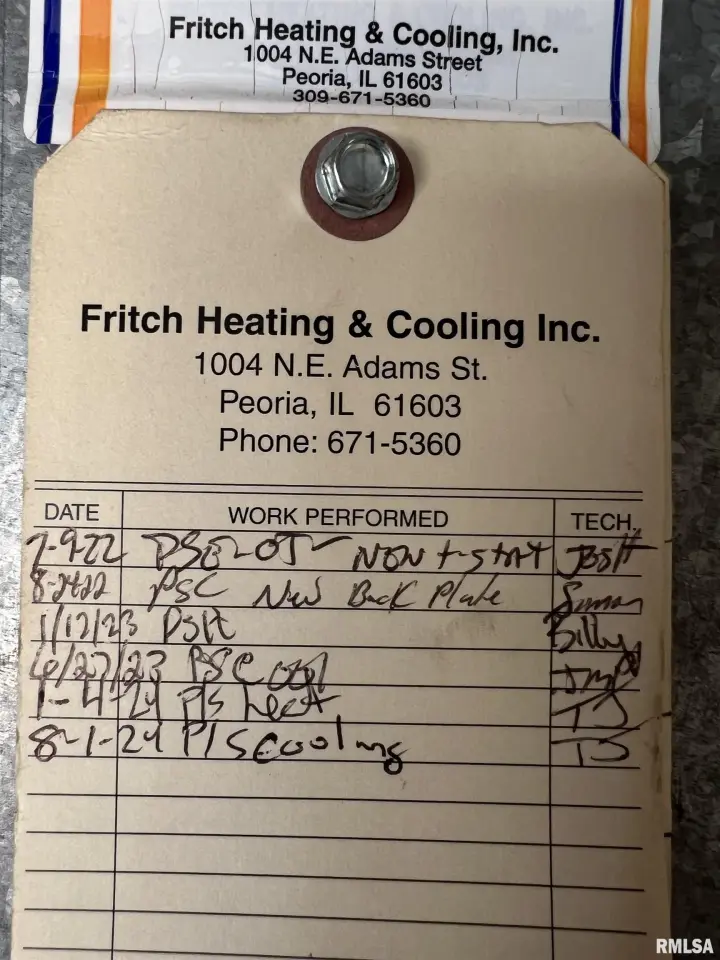 Fritch Heating & Cooling, Inc.
1004 N.E. Adams Street
Peoria, IL 61603
309-671-5360
Fritch Heating & Cooling Inc.
1004 N.E. Adams St.
Peoria, IL 61603
Phone: 671-5360
DATE WORK PERFORMED TECH.
7-9-22 t-stat
PSC New Back Plate
1/17/23 Billy
6/27/23
1-4-24 P/S heat TJ
8-1-24 P/S cooling TJ
RMLSA